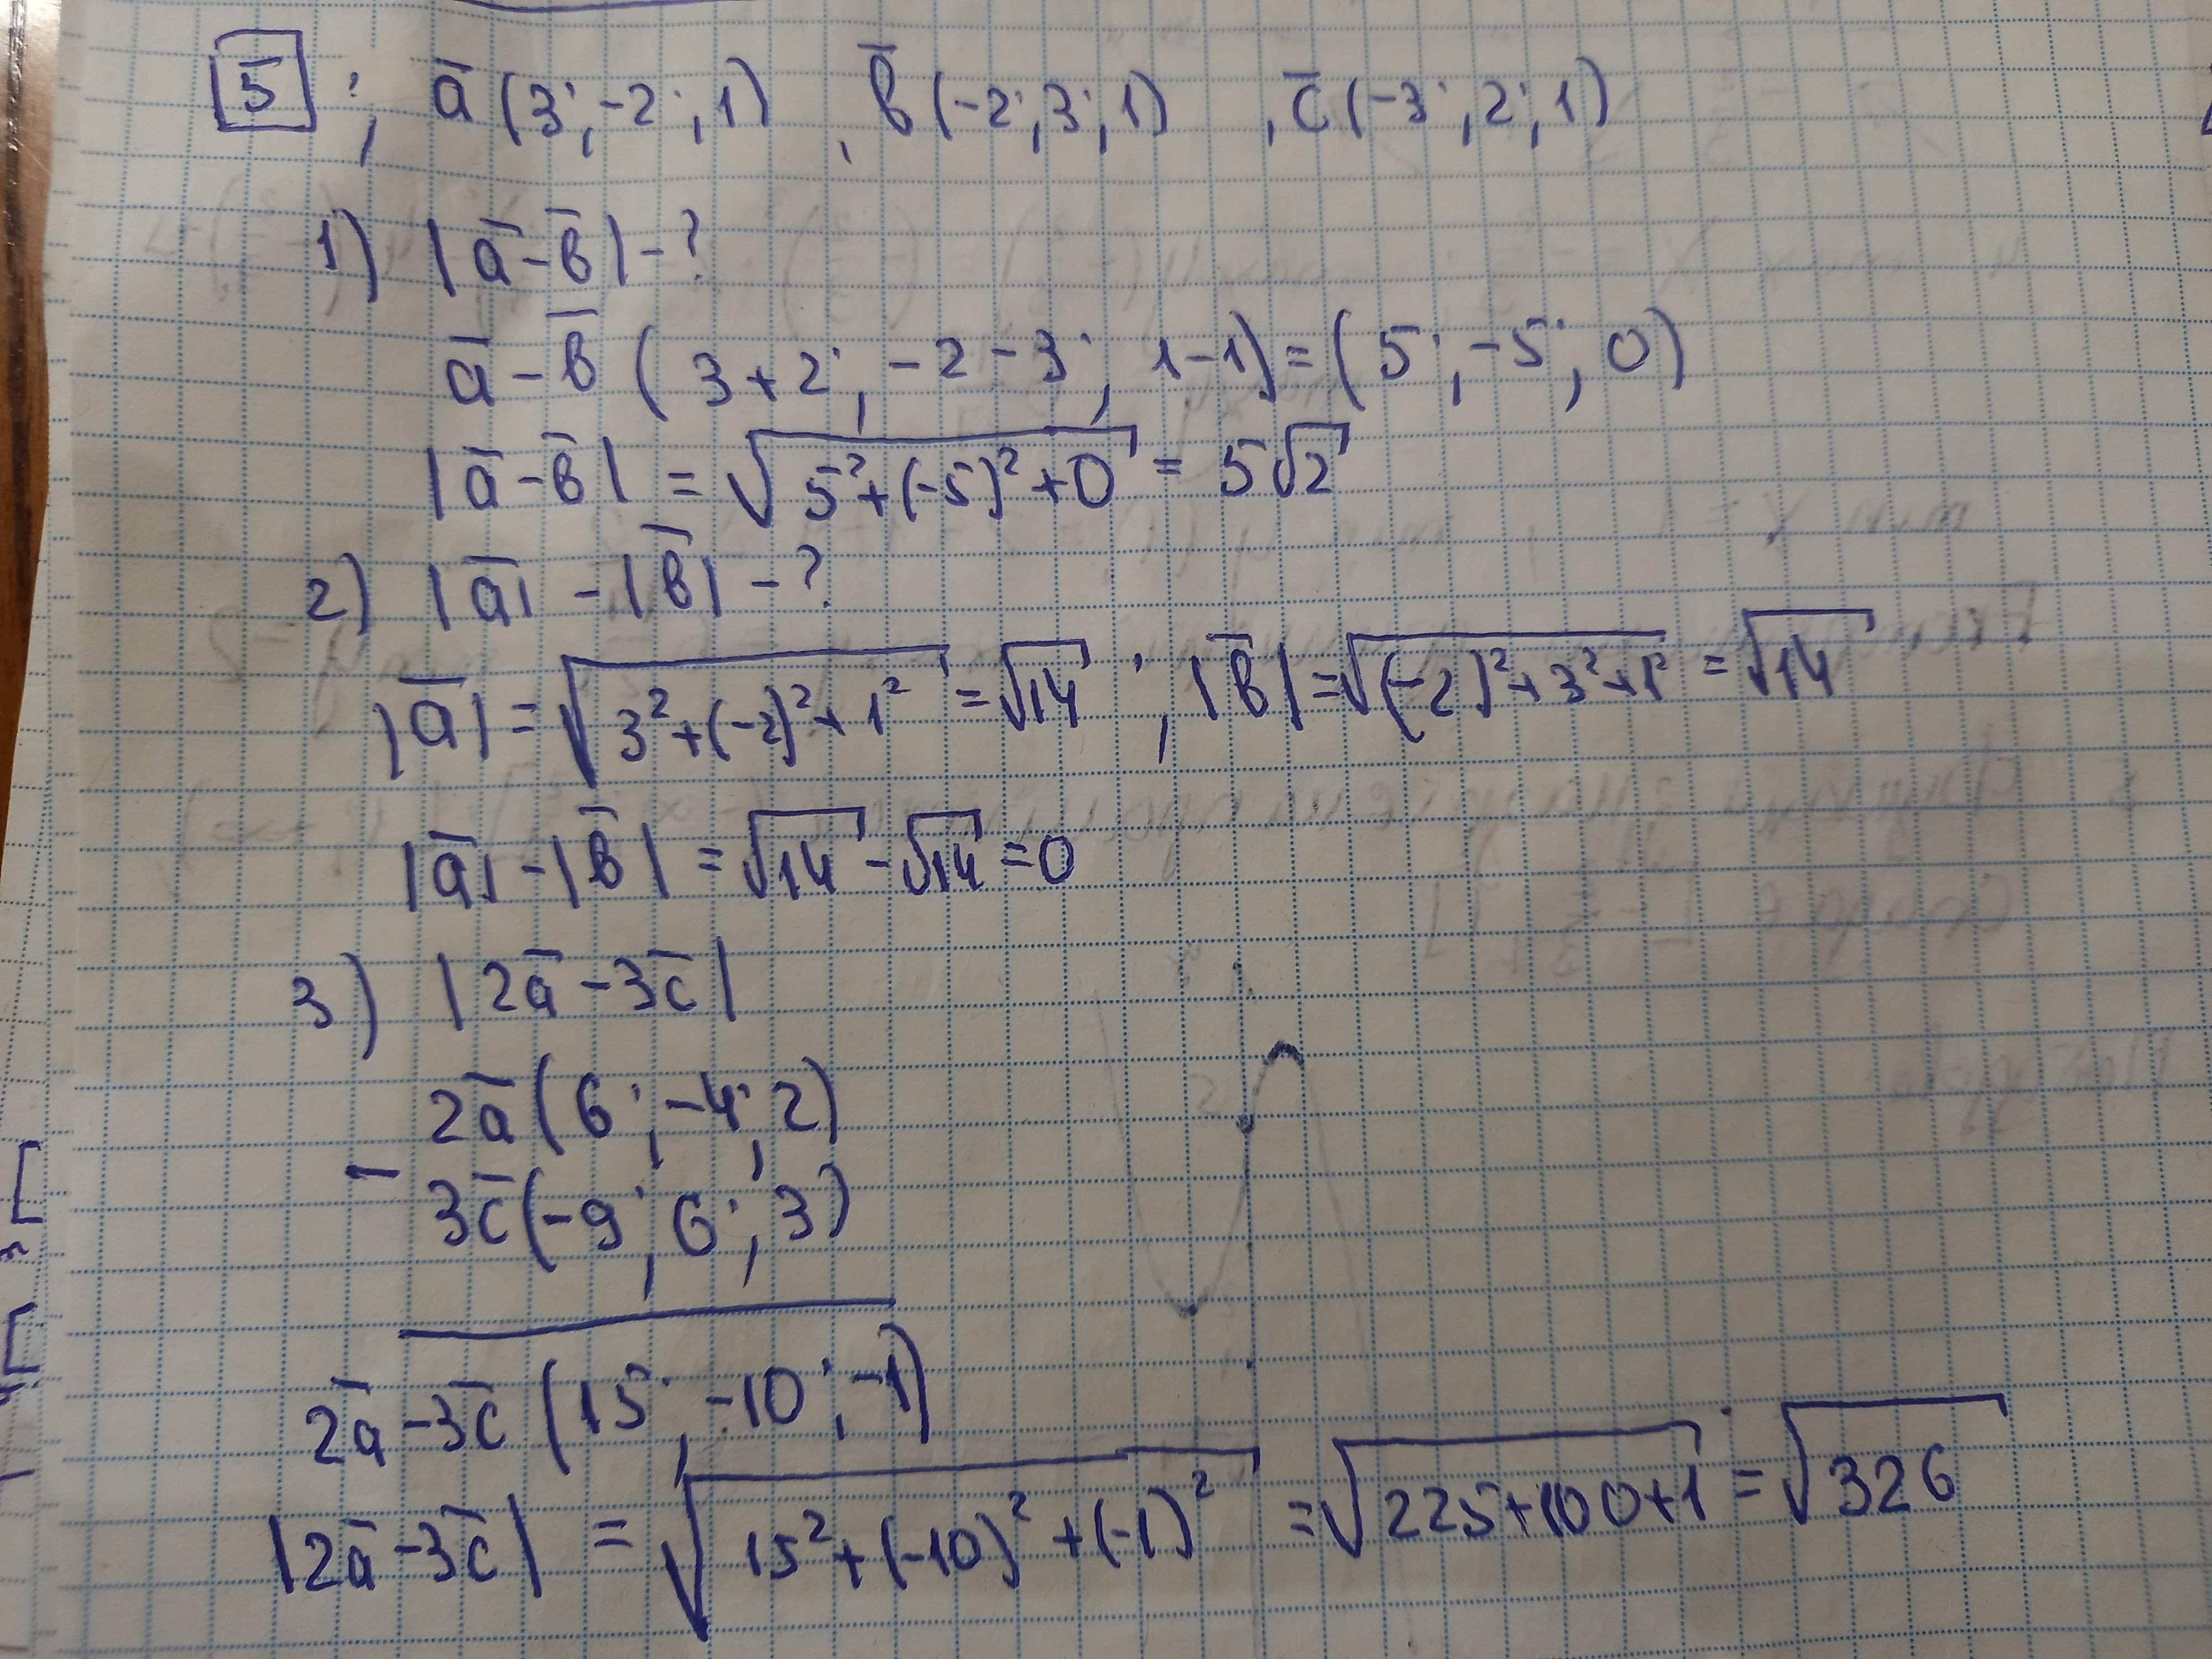 5 ; a̅ (3; -2; 1) , b̅ (-2; 3; 1) , c̅ (-3; 2; 1)
1) |a̅ - b̅| - ?
a̅ - b̅ ( 3+2; -2-3; 1-1) = (5; -5; 0)
|a̅ - b̅| = √(5²+(-5)²+0) = 5√2
2) |a̅| - |b̅| - ?
|a̅| = √(3²+(-2)²+1²) = √14 ; |b̅| = √((-2)²+3²+1²) = √14
|a̅| - |b̅| = √14 - √14 = 0
3) |2a̅ - 3c̅|
2a̅ (6; -4; 2)
- 3c̅ (-9; 6; 3)
2a̅ - 3c̅ (15; -10; -1)
|2a̅ - 3c̅| = √(15²+(-10)²+(-1)²) = √(225+100+1) = √326